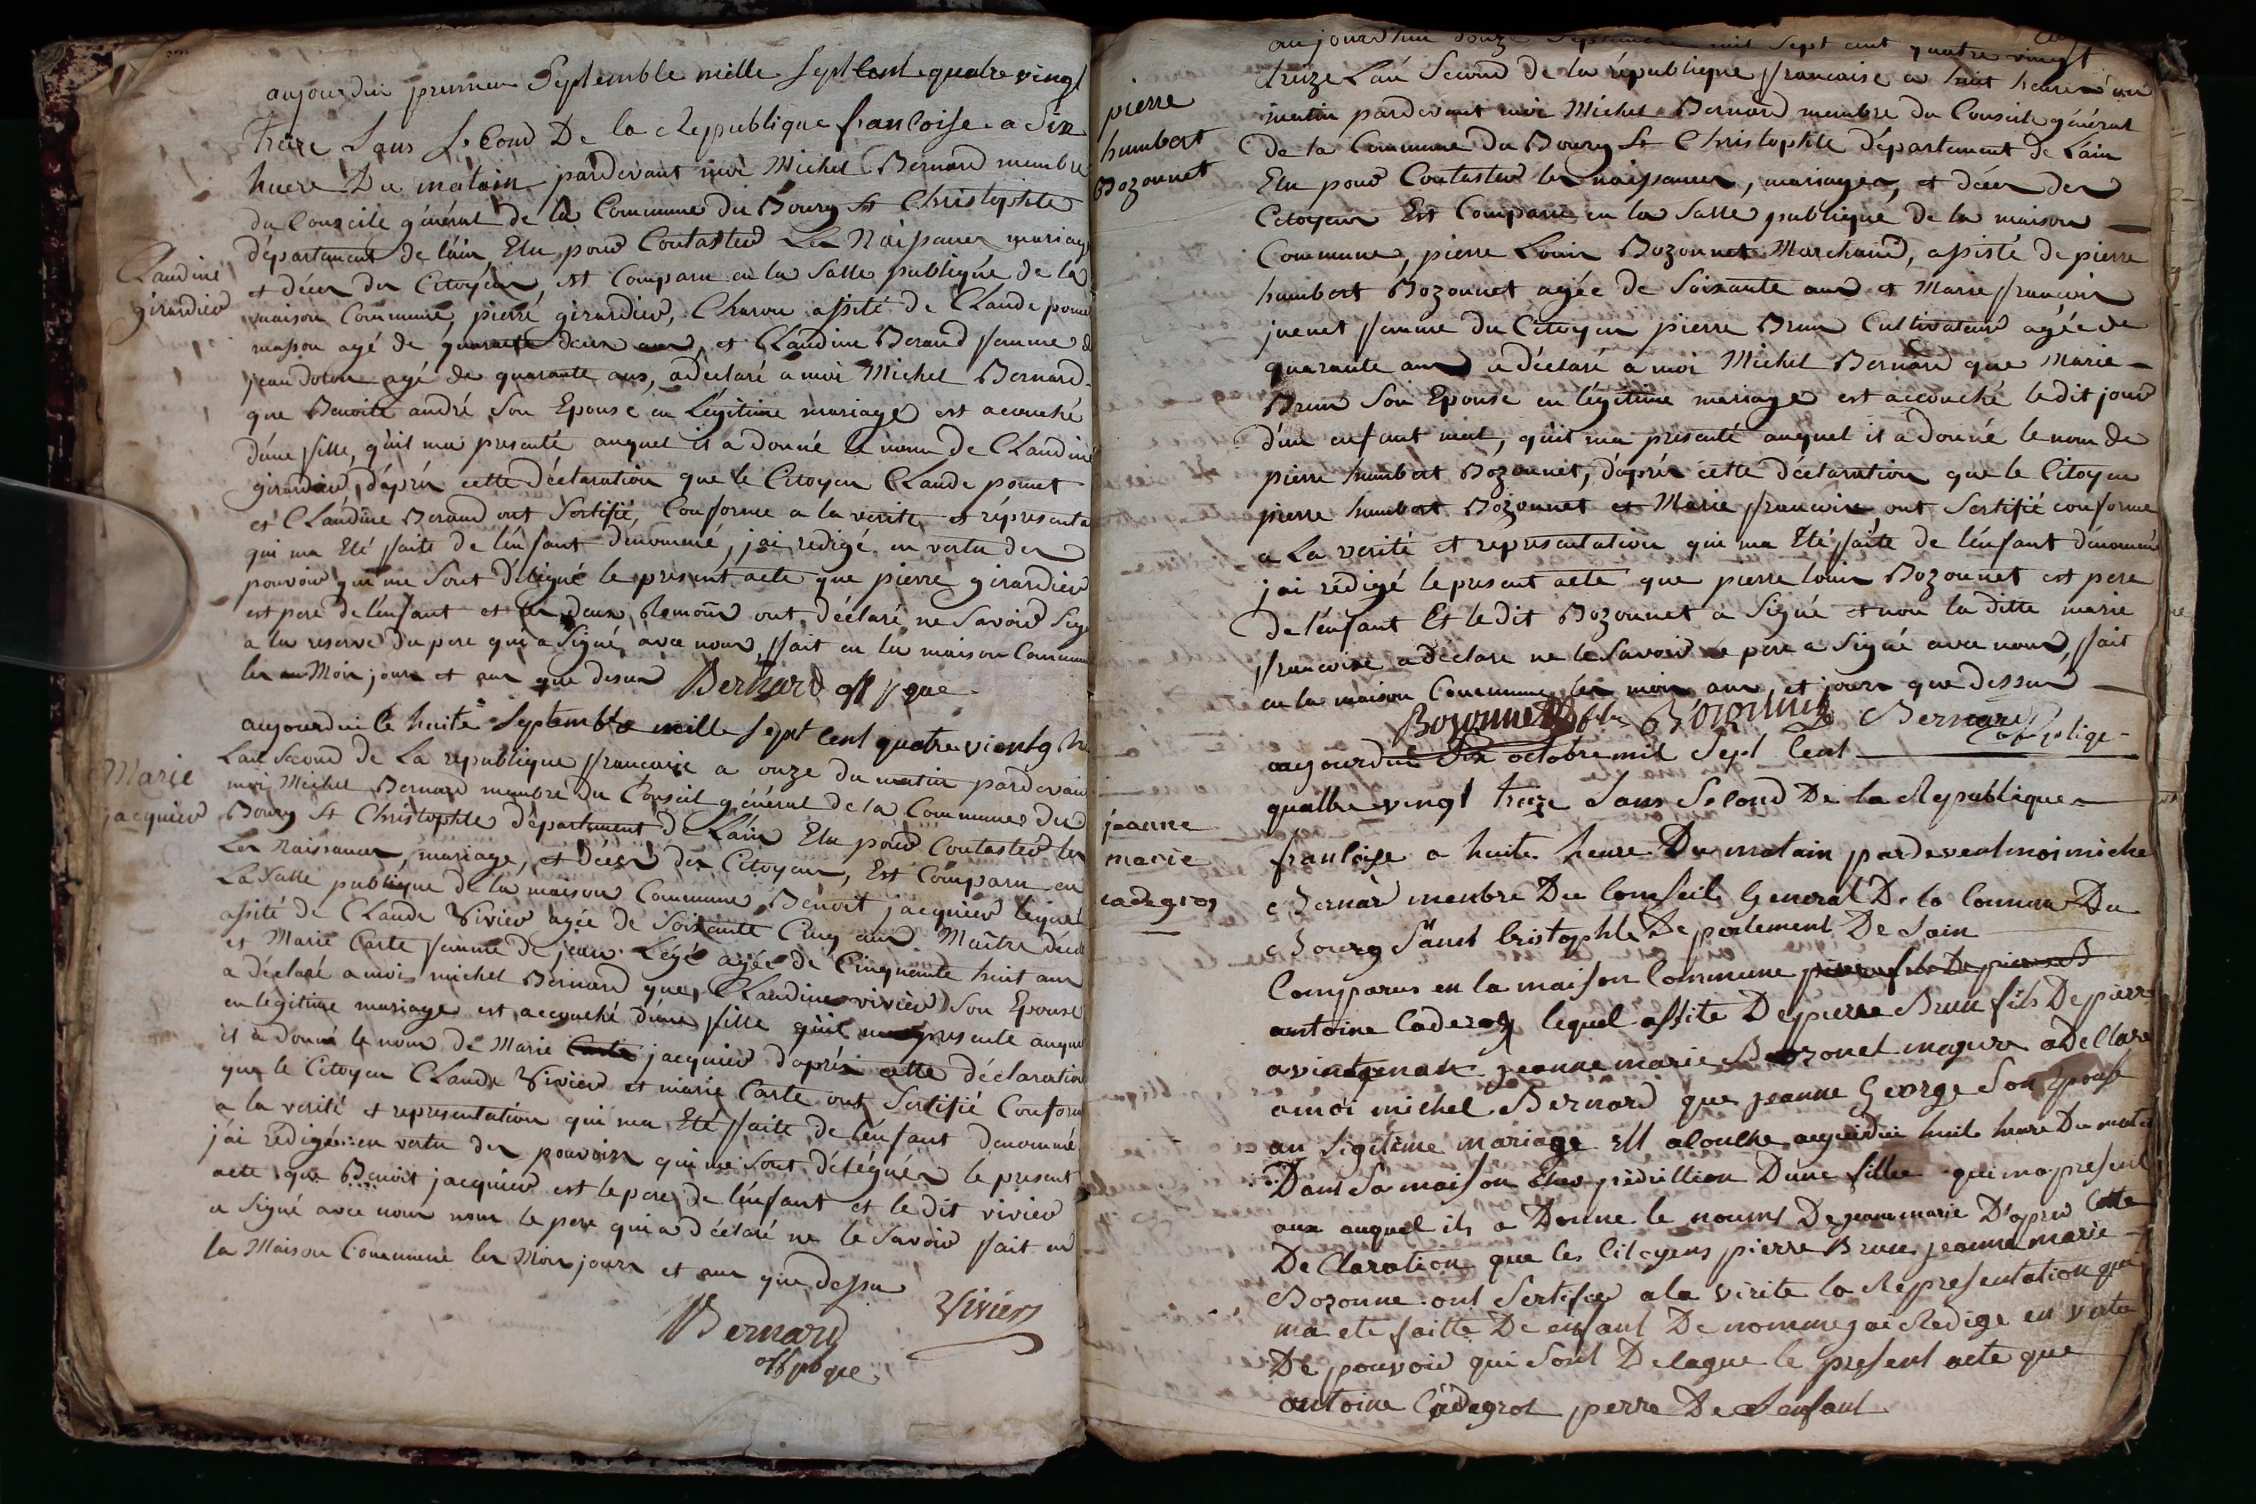 aujourdui premier Septemble mille Sept Cent quatre vingt
treize Lans Second De la Republique francoise a Six
heure Du matain pardevant moi Michel Bernard membre
du Conseile général de la Commune du Bourg St Christophle
département de lain Elu pour Contaster Les Naissances mariage
et décès des Citoyens, est Comparu en la Salle publique de la
Claudine
girardier
maison Commune, pierre girardier, Charon assité de Claude pomet
masson agé de quarante deux ans, et Claudine Beraud femme de
jean agé de quarante ans, adeclaré a moi Michel Bernard
que Benoite andré Son Epouse en Légitime mariage est acouché
d'une fille, quil ma presenté auquel il a donné le nom de Claudine
girardier, d'après cette déclaration que le Citoyen Claude pomet
et Claudine Beraud ont Sertifié, Conforme a la verité et représenta
qui ma Eté faite de lenfant denommé, jai redigé en vertu des
pouvoir qui me Sont délégué le present acte que pierre girardier
est pere de lenfant et les deux ont déclaré ne Savoir Sig
a la reserve du pere qui a Signé avec nous, fait en la maison Commune
les Mois jours et an que dessus Bernard off pque
aujourdui le huite Septembre mille Sept Cent quatre vientg
Lan Second de La republique francaise a onze du matin pardevant
Marie
jacquier
moi Michel Bernard membre du Conseil général de la Commune du
Bourg St Christophle département de Lain Elu pour Contaster les
Les Naissances, mariage, et Décès des Citoyens, Est Comparu en
La Salle publique de la maison Commune Benoit jacquier lequel
assité de Claude Vivier agée de Soixante Cinq ans Maître
et Marie Carte femme de jean Légé agée de Cinquante huit ans
a déclaré a moi michel Bernard que, Claudine vivier Son Epouse
en legitime mariage est accouché d'une fille quil ma presenté auquel
il a donné le nom de Marie Carte jacquier d'après cette déclaration
que le Citoyen Claude Vivier et marie Carte ont Sertifié Conforme
a la verité et representation qui ma Eté faite de lenfant denommé
j'ai redigé en vertu des pouvoirs qui me Sont délégués le present
acte que Benoit jacquier est le pere de lenfant et le dit vivier
a Signé avec nous non le pere qui a déclaré ne le Savoir fait en
la Maison Commune les Mois jours et an que dessu
Bernard Viviers
off pbque
aujourdhui douze Septembre mil Sept cent quatre vingt
treize Lan Second de la république francaise a huit heures du
pierre
humbert
Bozonnet
matin pardevant moi Michel Bernard membre du Conseile général
de la Commune du Bourg St Christophle département de Lain
Elu pour Contaster les naissances, mariages, et décès des
Citoyens Est Comparu en la Salle publique de la maison
Commune, pierre Louis Bozonnet Marchand, assisté de pierre
humbert Bozonnet agée de Soixante ans et Marie francoise
juenet femme du Citoyen pierre Brun Cultivateur agée de
quarante ans a déclaré a moi Michel Bernard que Marie
Brun Son Epouse en légitime mariage est accouché le dit jour
d'un enfant mal, quil ma presenté auquel il a donné le nom de
pierre humbert Bozonnet, d'après cette déclaration que le Citoyen
pierre humbert Bozonnet et Marie francoise, ont Sertifié conforme
a La verité et representation qui ma Eté faite de lenfant denommé
jai rédigé le present acte que pierre louis Bozonnet est pere
de lenfant Et le dit Bozonnet a Signé et non la ditte marie
francoise a declare ne le Savoir le pere a Signé avec nous, fait
en la maison Commune les mois ans, et jours que dessus
Bozonnet fils Bozonnet Bernard
off plige
aujourdui Six octobre mil Sept Cent
quatre vingt treize Lans Second De la Republique
jeanne
marie
cadegros
francloise a huite heure Du matain pardeveat moi miche
Bernar menbre Du Conseile General De la Commune Du
Bourg Saint Cristophle Departement De Lain
Comparus en la maison Commune pierre fils De pierre B
antoine Caderos lequel assite De pierre Brun fils De pierre
jeanne marie Bozonet majure a De Clare
a moi michel Bernard que jeanne George Son Epouse
an Ligitime mariage Est acouche aujurdui huit heure Du mata
Dans Sa maison D'une fille qui ma present
aux auquel ils a Donne le noums De jeanne marie D'apres Cette
De Claration que les Citoyens pierre Brun jeanne marie
Bozonne ont Sertifie a la verite la Representation qui
ma ete faitte De enfant De nomme jai Redige en vertu
De pouvoir qui Sont Delague le present acte que
antoine Cadegros perre De Lenfant